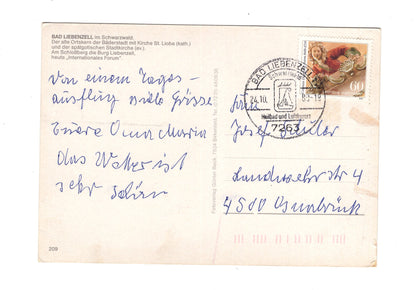 BAD LIEBENZELL im Schwarzwald.
Der alte Ortskern der Bäderstadt mit Kirche St. Lioba (kath.)
und der spätgotischen Stadtkirche (ev.).
Am Schloßberg die Burg Liebenzell,
heute „Internationales Forum"
Von einem Tages-
ausflug viele Grüsse
Eure Oma Maria
das Wetter ist
sehr schön
BAD LIEBENZELL
Schwarzwald
24.10.
Heilbad und Luftkurort
7263
60
Josef
Landwehrstr 4
4500 Osnabrück
209